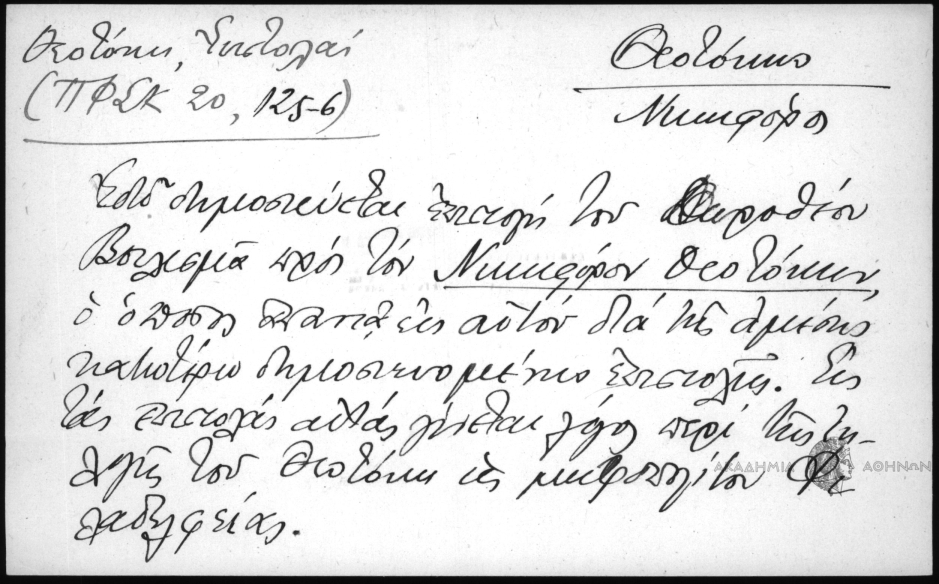 Θεοτόκη, Ἐπιστολαί
(ΠΦΣΚ 20, 125-6)
Θεοτόκης
Νικηφόρος
Ἐδῶ δημοσιεύεται ἐπιστολή τοῦ Δωροθέου
Βουλησμᾶ πρός τόν Νικηφόρον Θεοτόκην,
ὁ ὁποῖος ἀπαντᾷ εἰς αὐτόν διά τῆς ἀμέσως
κατωτέρω δημοσιευομένης ἐπιστολῆς. Εἰς
τάς ἐπιστολάς αὐτάς γίνεται λόγος περί τῆς
τοῦ Θεοτόκη εἰς μητροπολίτην Φι-
λαδελφείας.
ΑΚΑΔΗΜΙΑ ΑΘΗΝΩΝ